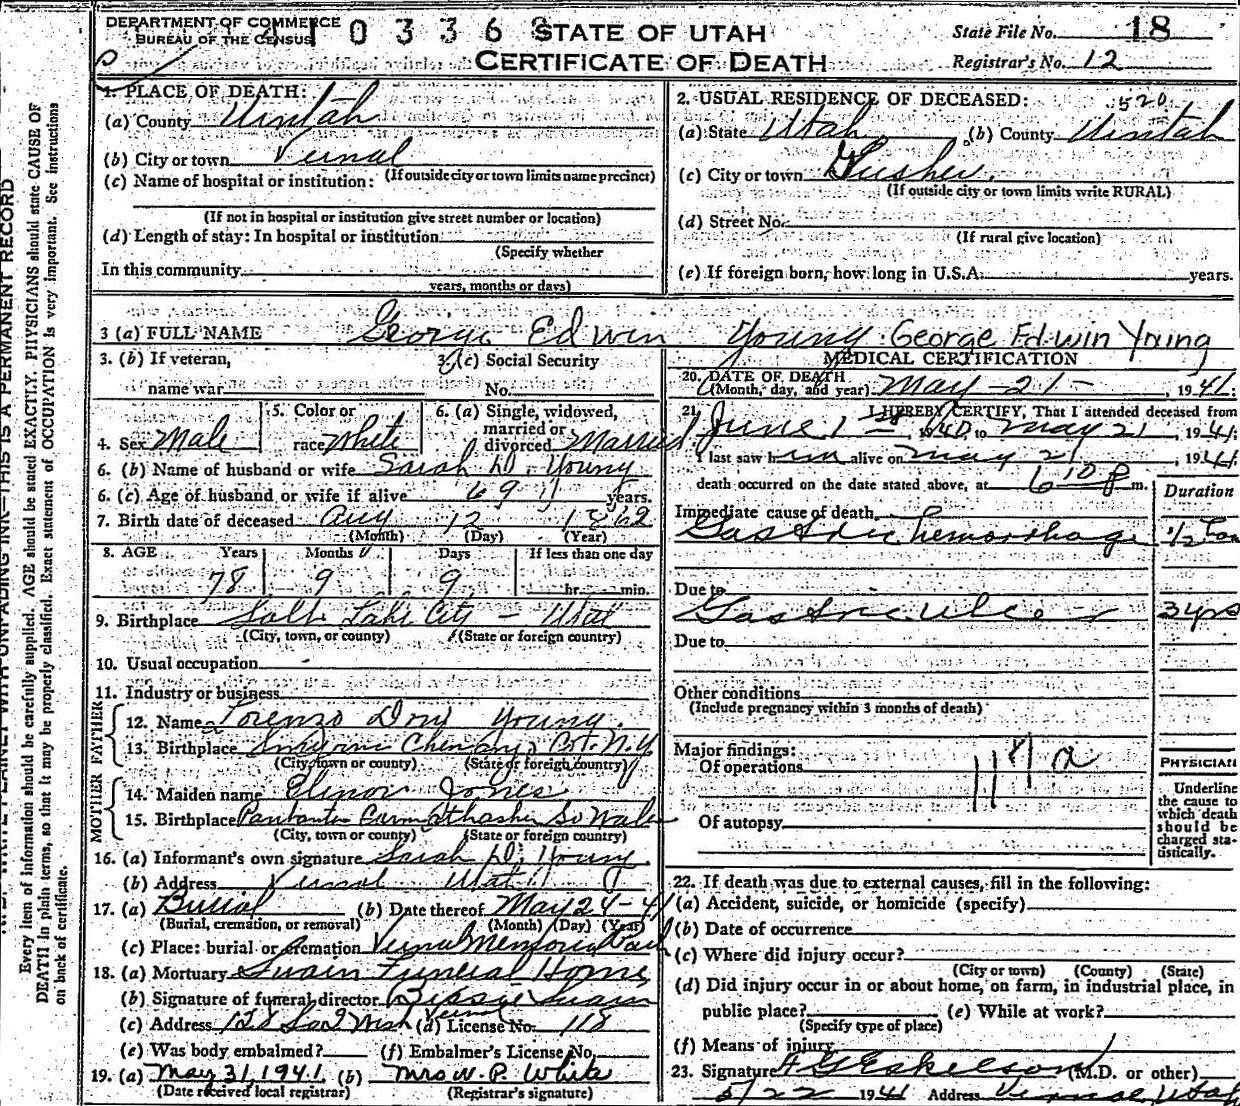 DEPARTMENT OF COMMERCE
BUREAU OF THE CENSUS
0 3 3 6
STATE OF UTAH
CERTIFICATE OF DEATH
State File No. 18
Registrar's No. 12
1. PLACE OF DEATH:
(a) County Uintah
(b) City or town Vernal
(If outside city or town limits name precinct)
(c) Name of hospital or institution:
(If not in hospital or institution give street number or location)
(d) Length of stay: In hospital or institution
(Specify whether
In this community
years, months or days)
2. USUAL RESIDENCE OF DECEASED: 520
(a) State Utah (b) County Uintah
(c) City or town Gusher.
(If outside city or town limits write RURAL)
(d) Street No.
(If rural give location)
(e) If foreign born, how long in U.S.A. years.
3 (a) FULL NAME George Edwin Young George Edwin Young
3. (b) If veteran,
name war
3. (c) Social Security
No.
4. Sex Male
5. Color or
race White
6. (a) Single, widowed,
married or
divorced Married
6. (b) Name of husband or wife Sarah D. Young
6. (c) Age of husband or wife if alive 69 years.
7. Birth date of deceased Aug 12 1862
(Month) (Day) (Year)
8. AGE Years Months Days If less than one day
78 9 9 hr. min.
9. Birthplace Salt Lake City - Utah
(City, town, or county) (State or foreign country)
10. Usual occupation
11. Industry or business
FATHER
12. Name Lorenzo Dow Young.
13. Birthplace Co. N.Y
(City, town or county) (State or foreign country)
MOTHER
14. Maiden name Elinor Jones
15. Birthplace So Wales
(City, town or county) (State or foreign country)
16. (a) Informant's own signature Sarah D. Young.
(b) Address Vernal Utah
17. (a) Burial (b) Date thereof May 24-41
(Burial, cremation, or removal) (Month) (Day) (Year)
(c) Place: burial or cremation Vernal Memorial Park
18. (a) Mortuary Swain Funeral Home
(b) Signature of funeral director Bessie Swain
(c) Address 128 So 2 West Vernal (d) License No. 118
(e) Was body embalmed? (f) Embalmer's License No.
19. (a) May 31, 1941. (b) Mrs N. P. White
(Date received local registrar) (Registrar's signature)
MEDICAL CERTIFICATION
20. DATE OF DEATH
(Month, day, and year) May - 21 - , 1941;
21. I HEREBY CERTIFY, That I attended deceased from
June 1 1940, to May 21, 1941;
I last saw him alive on May 21, 1941;
death occurred on the date stated above, at 6 10 P m.
Duration
Immediate cause of death
Gastric hemorrhage 1/2 hour
Due to
Gastric ulcer 3 yrs
Due to
Other conditions
(Include pregnancy within 3 months of death)
Major findings:
Of operations
117 a
Of autopsy
PHYSICIAN
Underline
the cause to
which death
should be
charged sta-
tistically.
22. If death was due to external causes, fill in the following:
(a) Accident, suicide, or homicide (specify)
(b) Date of occurrence
(c) Where did injury occur?
(City or town) (County) (State)
(d) Did injury occur in or about home, on farm, in industrial place, in
public place? (e) While at work?
(Specify type of place)
(f) Means of injury
23. Signature A G Eskelson (M.D. or other)
5/22 1941 Address Vernal, Utah
THIS IS A PERMANENT RECORD
Every item of information should be carefully supplied. AGE should be stated EXACTLY. PHYSICIANS should state CAUSE OF
DEATH in plain terms, so that it may be properly classified. Exact statement of OCCUPATION is very important. See instructions
on back of certificate.